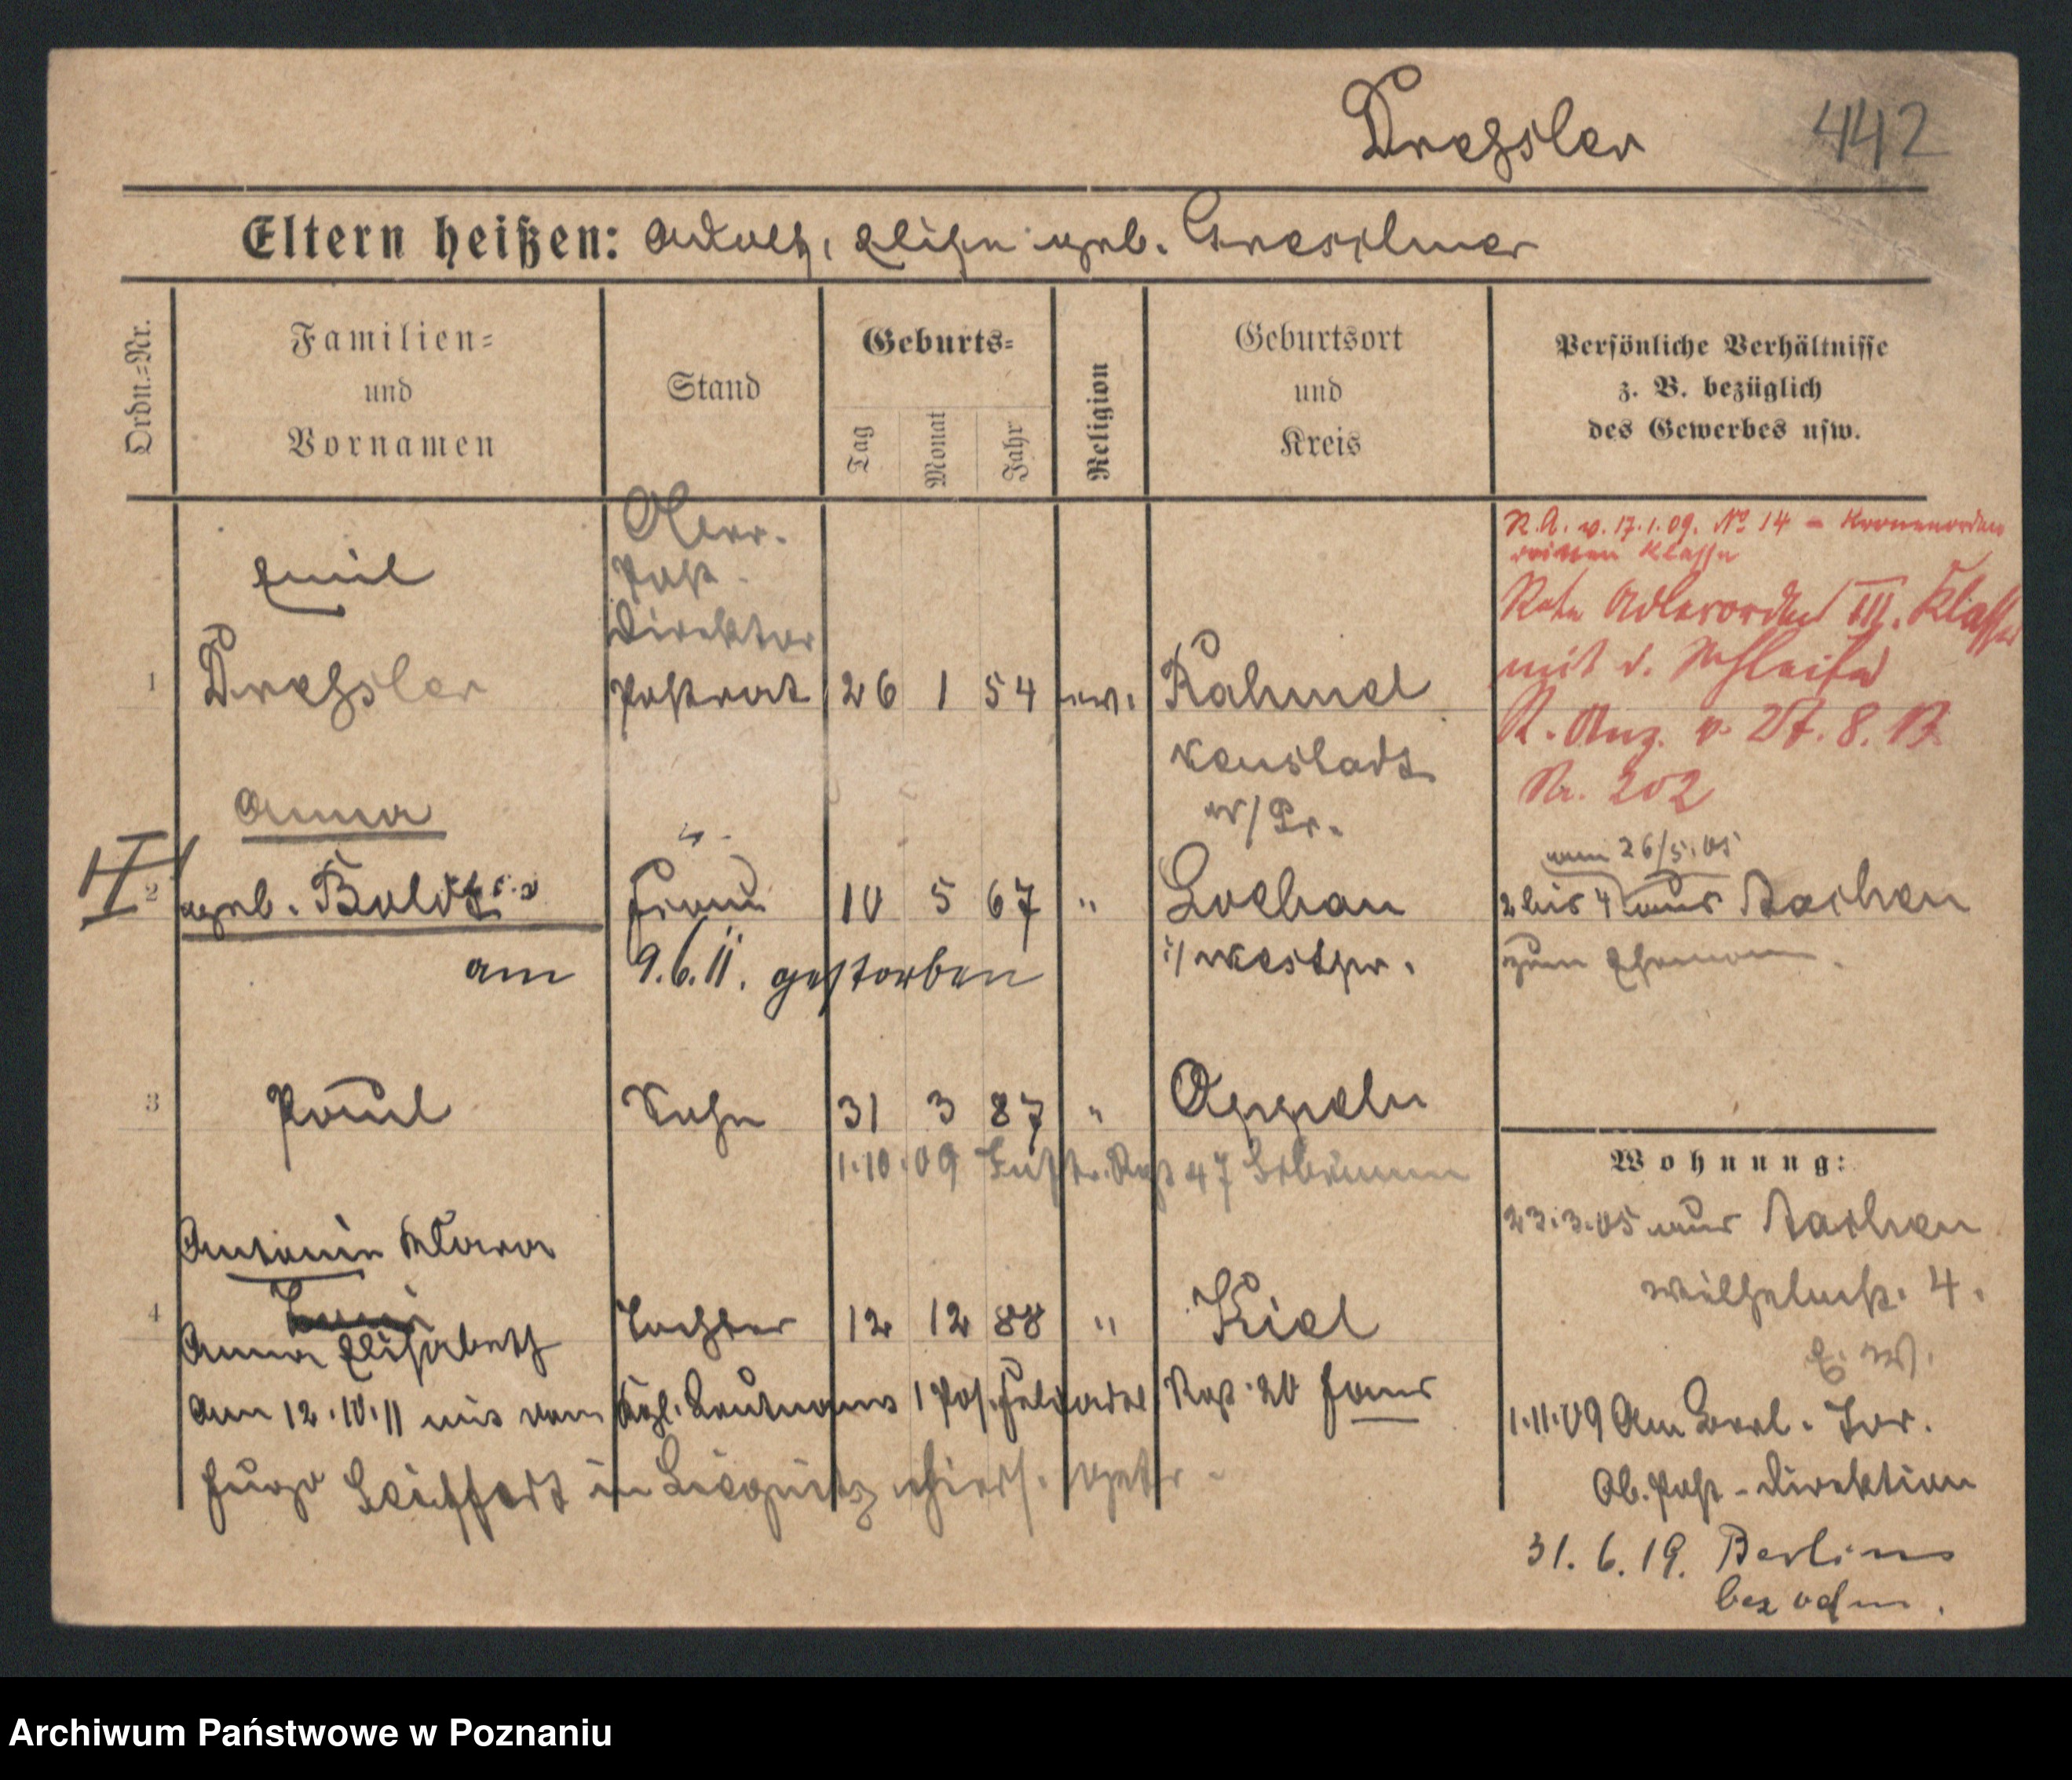 Dressler 442
Eltern heißen: Adolf, Elise geb. Gresslner
Ordn.=Nr.
Familien=
und
Vornamen
Stand
Geburts=
Tag
Monat
Jahr
Religion
Geburtsort
und
Kreis
Persönliche Verhältnisse
z. B. bezüglich
des Gewerbes usw.
R.A. v. 17.1.09. No 14 = Kronenorden
dritten Klasse
Rote Adlerorden III. Klasse
mit d. Schleife
R. Anz. v. 27. 8. 13
Nr. 202
Emil
Ober.
Post-
Direktor
1 Dressler Postrat 26 1 54 ev. Rahmel
Neustadt
W/Pr.
Anna
2 geb. Boldt Frau 10 5 67 " Lochau
i/Westpr.
am 26/5.05
2 bis 4 aus Aachen
zum Ehemann.
am 9.6.11. gestorben
3 Paul Sohn 31 3 87 " Oppeln
1.10.09 Inftr. Rgt 47 Schrimm
Antonie Klara
Toni
4 Anna Elisabeth Tochter 12 12 88 " Kiel
am 12.10.11 mit dem Kgl. Leutnant 1 Pos. Feldartl. Rgt. 20 Hans
Hugo Seiffert in Liegnitz getr.
Wohnung:
23.3.05 aus Aachen
Wilhelmstr. 4.
E. W.
1.11.09 Am Berl. Tor.
Ob. Post-Direktion
31. 6. 19. Berlin
Archiwum Państwowe w Poznaniu